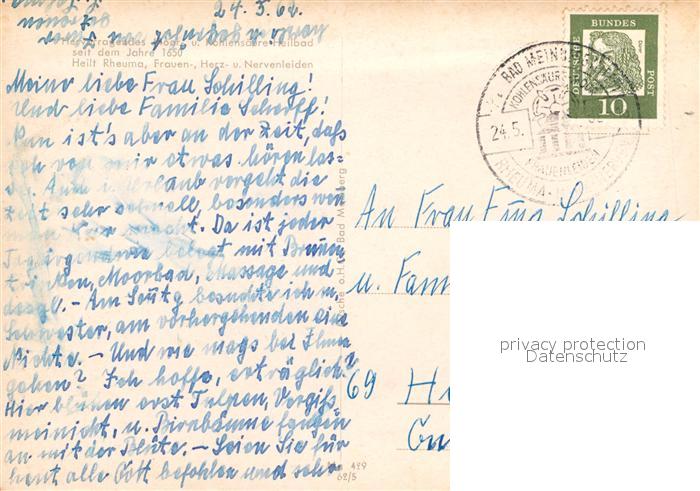 24. 5. 62.
Hervorragendes Moor- u. Kohlensäure-Heilbad
seit dem Jahre 1650
Heilt Rheuma, Frauen-, Herz- u. Nervenleiden
Meine liebe Frau Schilling!
Und liebe Familie Scherff!
Nun ist's aber an der Zeit, daß
Sie von mir etwas hören las-
sen. Auch im Urlaub vergeht die
Zeit sehr schnell, besonders wenn
man Kur macht. Da ist jeder
Tag irgendwie belegt mit Brunnen
trinken, Moorbad, Massage und
desgl. - Am Sonntg besuchte ich m.
Schwester, am vorhergehenden eine
Nichte. - Und wie mags bei Ihnen
gehen? Ich hoffe, erträglich?
Hier blühen erst Tulpen, Vergiß=
meinicht, u. Birnbäume fangen
an mit der Blüte. - Seien Sie für
heut alle Gott befohlen und sehr
Bad Meinberg
429
62/5
DEUTSCHE BUNDES POST
10
BAD MEINBERG
24.5.
FRAUENLEIDEN
RHEUMA
An Frau Schilling
u. Fam
69 H
privacy protection
Datenschutz